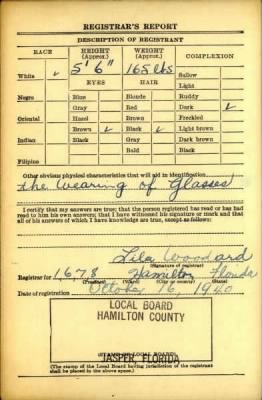 REGISTRAR'S REPORT
DESCRIPTION OF REGISTRANT
RACE HEIGHT (Approx.) WEIGHT (Approx.) COMPLEXION
White ✓ 5' 6" 165 lbs Sallow
EYES HAIR Light
Negro Blue Blonde Ruddy
Gray Red Dark ✓
Oriental Hazel Brown Freckled
Brown ✓ Black ✓ Light brown
Indian Black Gray Dark brown
Bald Black
Filipino
Other obvious physical characteristics that will aid in identification
the Wearing of Glasses
I certify that my answers are true; that the person registered has read or has had
read to him his own answers; that I have witnessed his signature or mark and that
all of his answers of which I have knowledge are true, except as follows:
Lila Woodard
(Signature of registrar)
Registrar for 1,678 Hamilton Florida
(Precinct) (City or county) (State)
Date of registration October 16, 1940
LOCAL BOARD
HAMILTON COUNTY
JASPER, FLORIDA
(STAMP OF LOCAL BOARD)
(The stamp of the Local Board having jurisdiction of the registrant
shall be placed in the above space.)